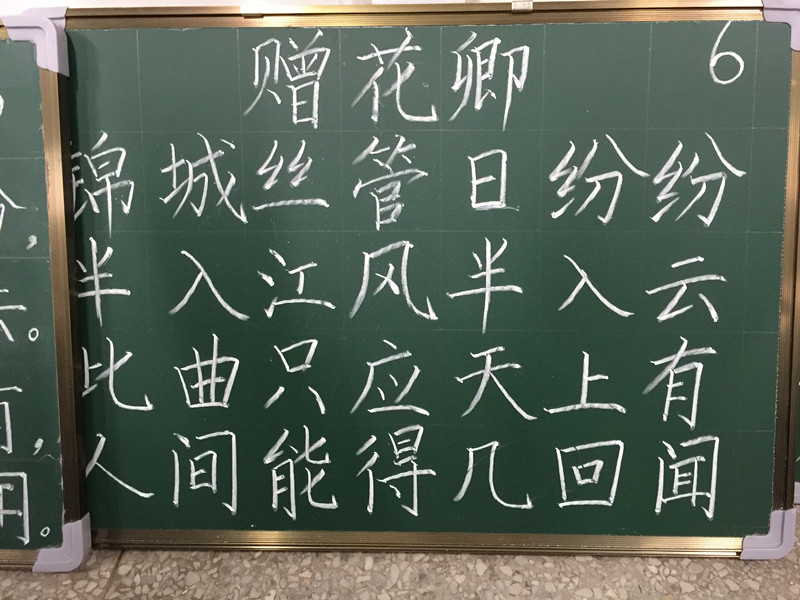 赠花卿 6
锦城丝管日纷纷
半入江风半入云
此曲只应天上有
人间能得几回闻